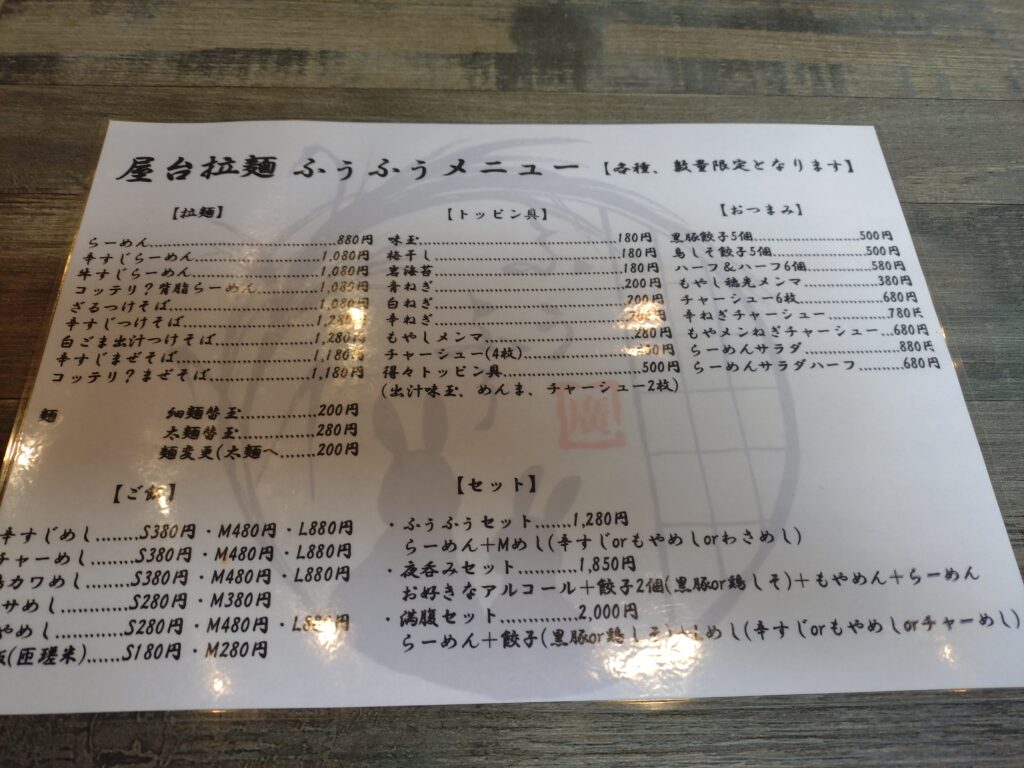 屋台拉麺 ふぅふぅメニュー 【各種、数量限定となります】
【拉麺】
らーめん 880円
辛すじらーめん 1,080円
牛すじらーめん 1,080円
コッテリ?背脂らーめん 1,080円
ざるつけそば 1,080円
辛すじつけそば 1,280円
白ごま出汁つけそば 1,280円
辛すじまぜそば 1,180円
コッテリ?まぜそば 1,180円
麺
細麺替玉 200円
太麺替玉 280円
麺変更(太麺へ 200円
【トッピン具】
味玉 180円
梅干し 180円
岩海苔 180円
青ねぎ 200円
白ねぎ 200円
辛ねぎ
もやしメンマ 280円
チャーシュー(4枚)
得々トッピン具 500円
(出汁味玉、めんま、チャーシュー2枚)
【おつまみ】
黒豚餃子5個 500円
鳥しそ餃子5個 500円
ハーフ&ハーフ6個 580円
もやし穂先メンマ 380円
チャーシュー6枚 680円
辛ねぎチャーシュー 780円
もやメンねぎチャーシュー 680円
らーめんサラダ 880円
らーめんサラダハーフ 680円
【ご飯】
辛すじめし S380円・M480円・L880円
チャーめし S380円・M480円・L880円
カワめし S380円・M480円・L880円
サめし S280円・M380円
やめし S280円・M480円・L880円
(匝瑳米) S180円・M280円
【セット】
・ふぅふぅセット 1,280円
らーめん+Mめし(辛すじorもやめしorわさめし)
・夜呑みセット 1,850円
お好きなアルコール+餃子2個(黒豚or鶏しそ)+もやめん+らーめん
・満腹セット 2,000円
らーめん+餃子(黒豚or鶏しそ)+Lめし(辛すじorもやめしorチャーめし)